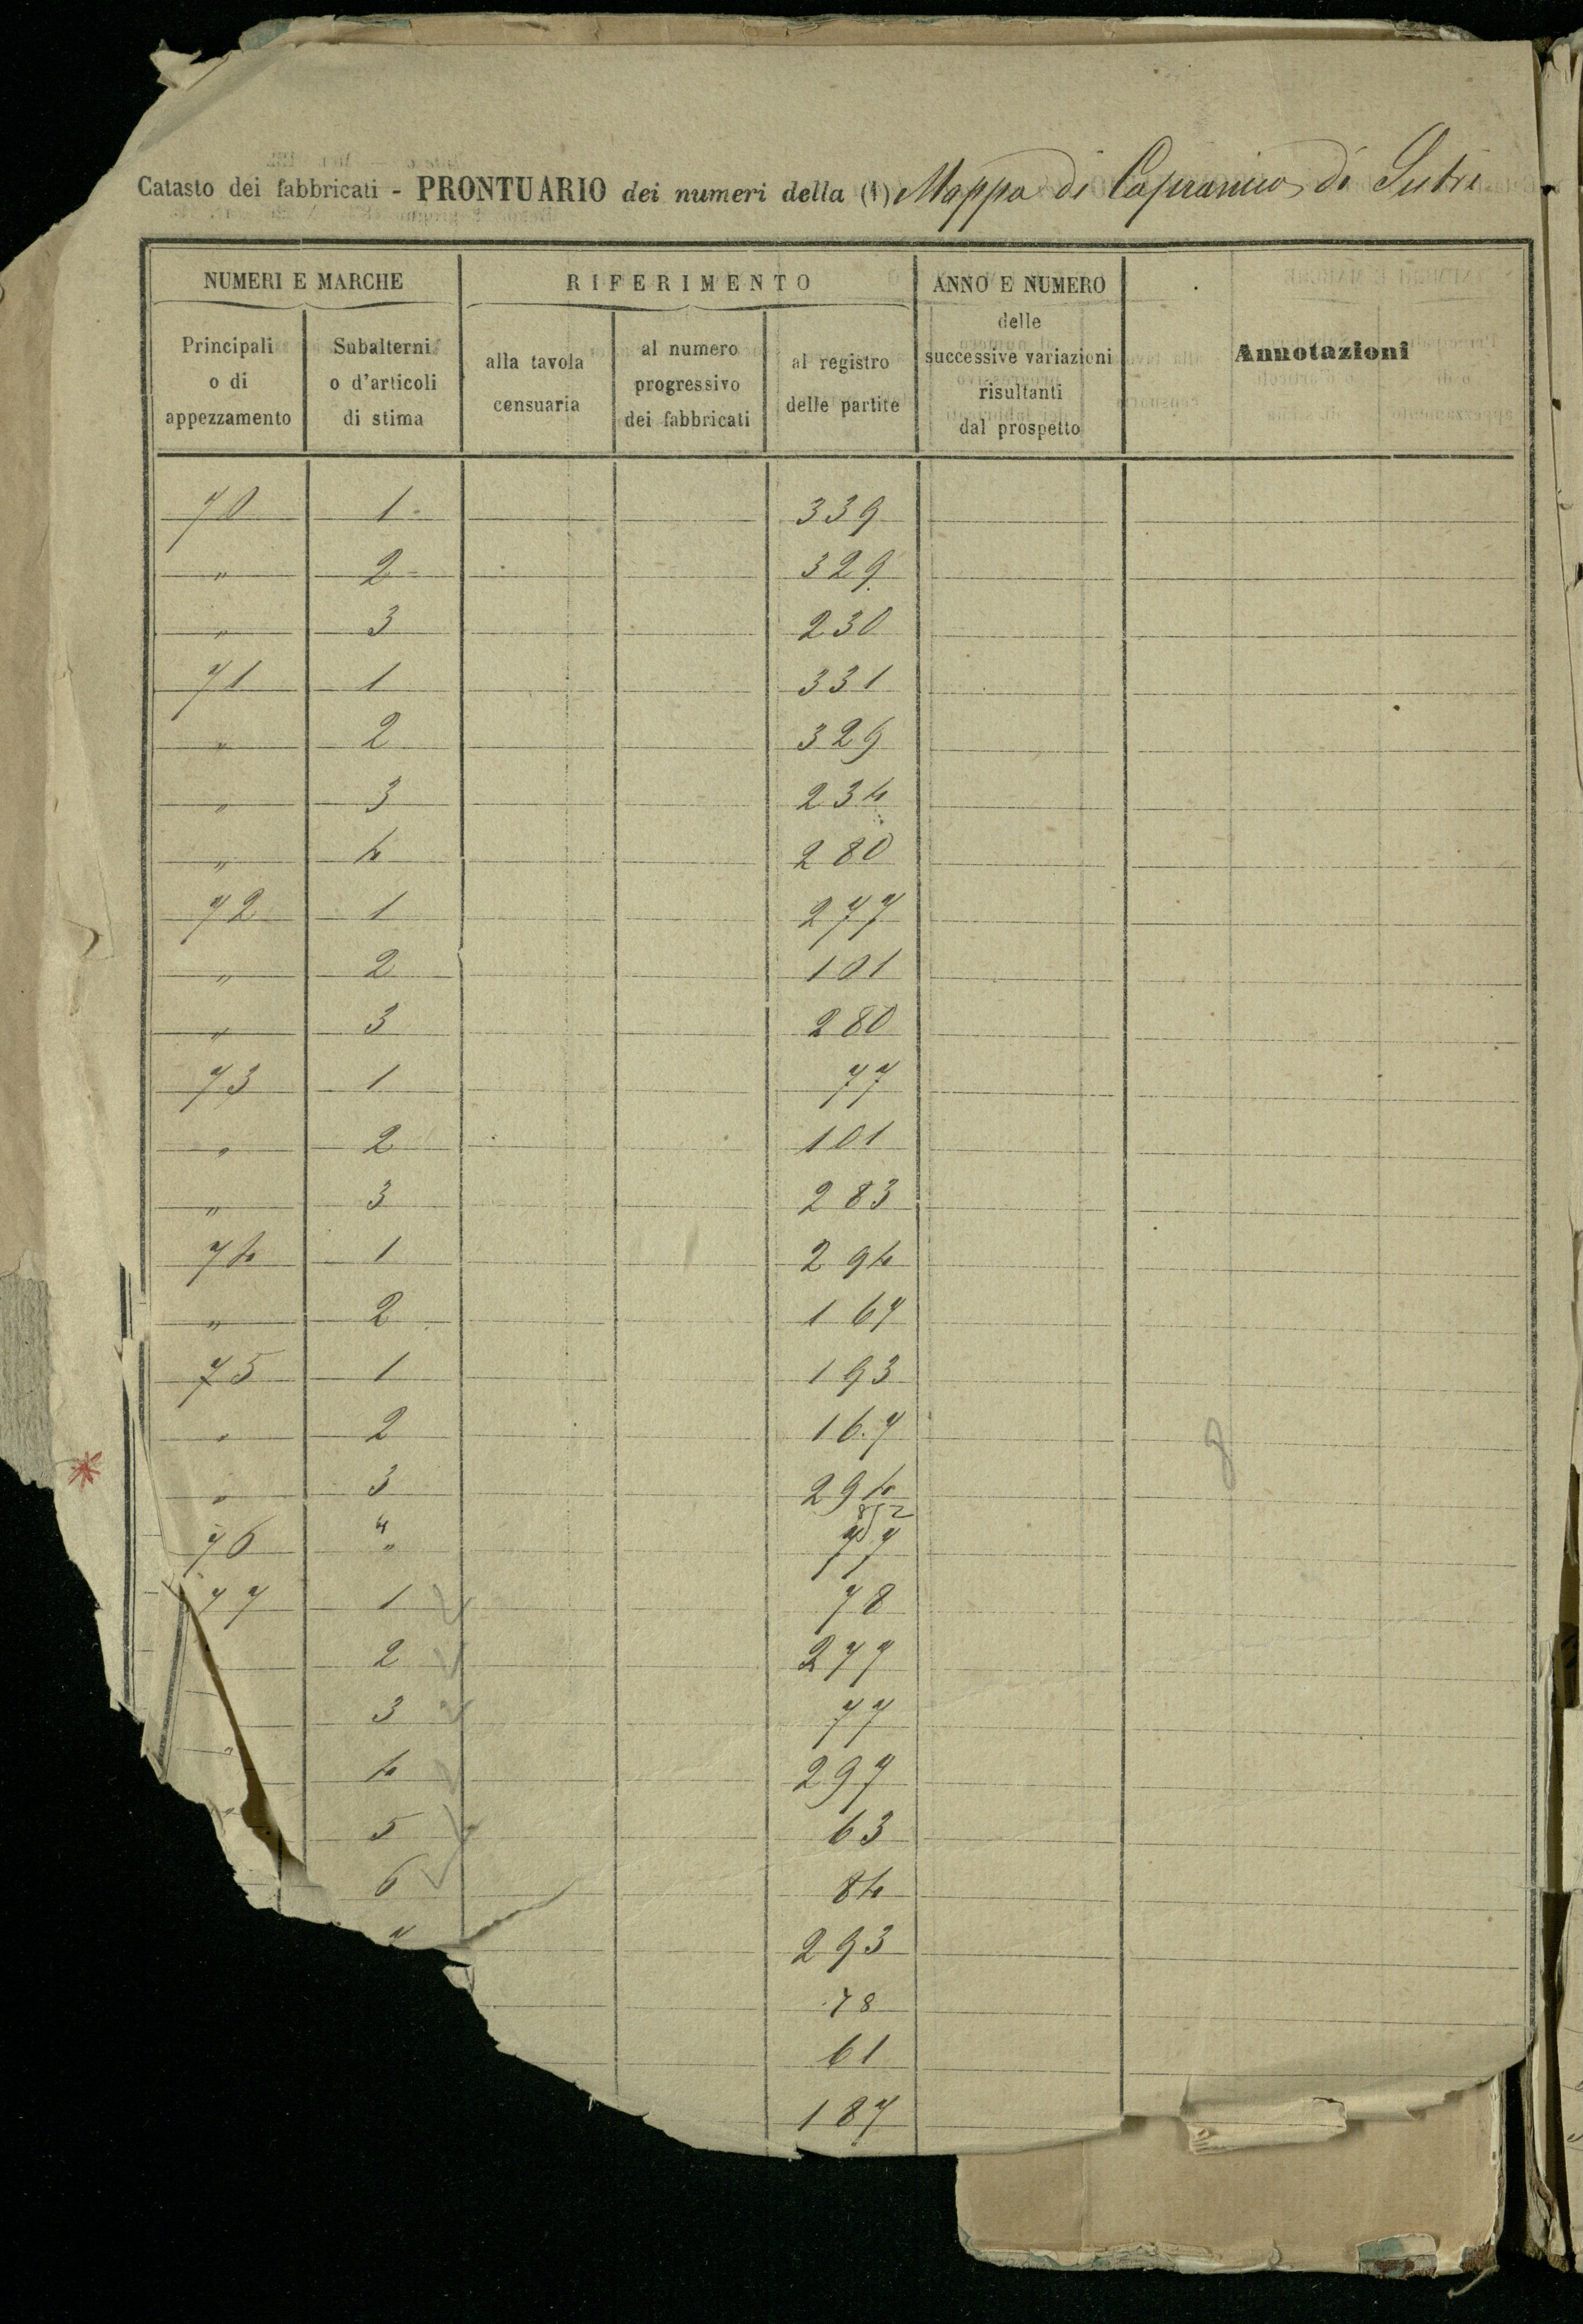 Catasto dei fabbricati - PRONTUARIO dei numeri della (1) Mappa di Capranica di Sutri
NUMERI E MARCHE
RIFERIMENTO
ANNO E NUMERO
delle
successive variazioni
risultanti
dal prospetto
Annotazioni
Principali
o di
appezzamento
Subalterni
o d'articoli
di stima
alla tavola
censuaria
al numero
progressivo
dei fabbricati
al registro
delle partite
70 1 339
" 2 329
" 3 230
71 1 331
" 2 329
" 3 234
" 4 280
72 1 277
" 2 101
" 3 280
73 1 77
" 2 101
" 3 283
74 1 294
" 2 167
75 1 193
" 2 167
" 3 294
8
852
76 " 77
77 1 78
2 277
3 77
" 4 297
" 5 63
6 84
293
78
61
187